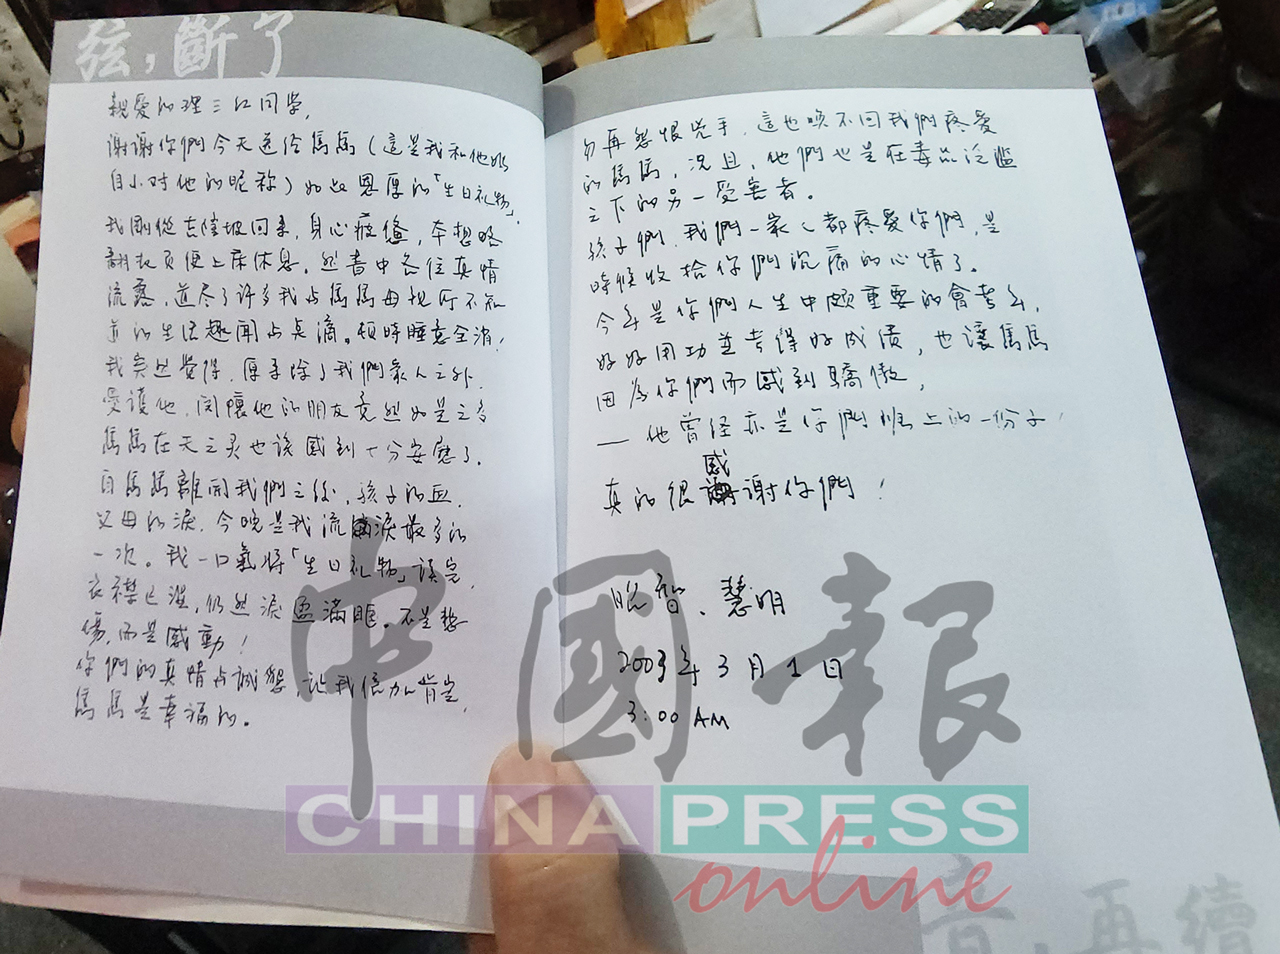 弦，斷了
親愛的理三江同学，
谢谢你們今天送给馬馬（這是我和他媽
自小对他的昵称）如此恩厚的「生日礼物」。
我剛從吉隆坡回来，身心疲惫，本想略
翻扎页便上床休息。然書中各位真情
流露，道尽了许多我与馬馬母親所不知
道的生活趣闻与点滴。顿時睡意全消！
我突然覺得，厚 除了我們家人之外，
愛護他，関懷他的朋友竟然如是之多
馬馬在天之灵也该感到十分安慰了。
自馬馬離開我們之後，孩子的血，
父母的淚，今晚是我流淚最多的
一次。我一口氣将「生日礼物」读完，
衣襟已湿，仍然淚盈满眶。不是悲
傷，而是感動！
你們的真情与誠懇，让我倍加肯定，
馬馬是幸福的。
勿再怨恨兇手，這也喚不回我們疼愛
的馬馬，況且，他們也是在毒品泛濫
之下的另一受害者。
孩子們，我們一家人都疼愛你們，是
時候收拾你們沉痛的心情了。
今年是你們人生中頗重要的會考年，
好好用功並考得好成绩，也讓馬馬
因為你們而感到驕傲，
— 他曾经亦是你們班上的一份子！
真的很感谢你們！
昭智、慧明
2003年3月1日
3:00 AM
中國報
CHINA PRESS
online
音，再續